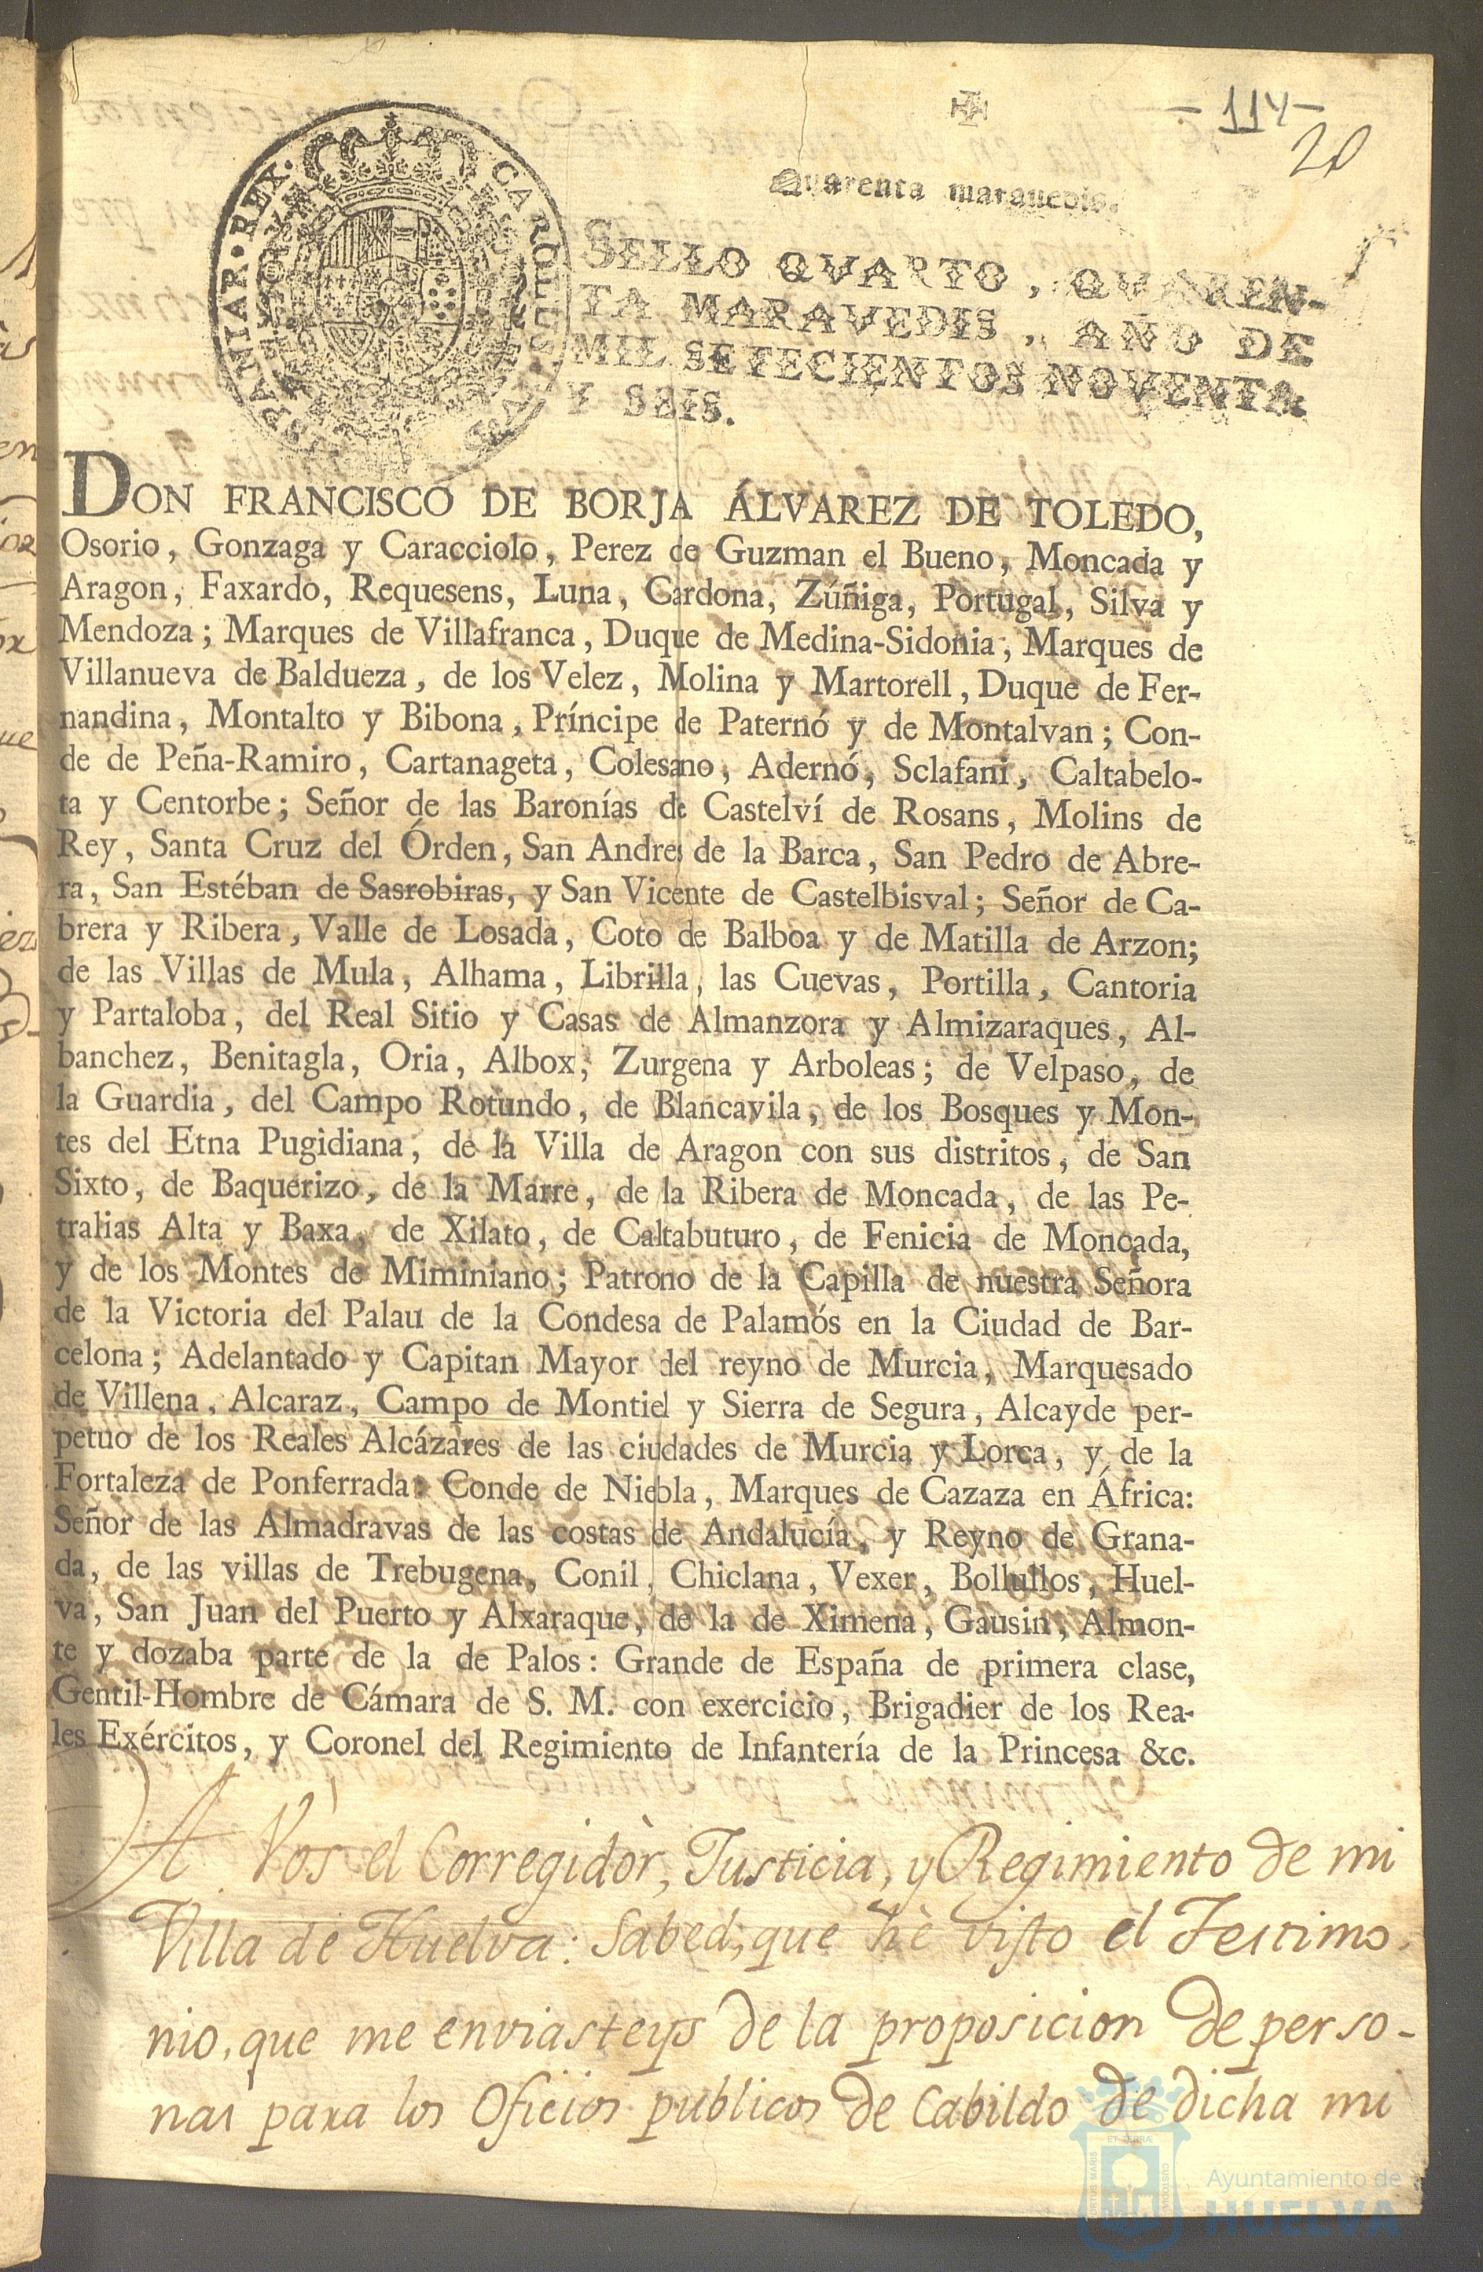 - 114 -
20
Quarenta maravedis.
SELLO QVARTO, QVAREN-
TA MARAVEDIS, AÑO DE
MIL SETECIENTOS NOVENTA
Y SEIS.
DON FRANCISCO DE BORJA ÁLVAREZ DE TOLEDO,
Osorio, Gonzaga y Caracciolo, Perez de Guzman el Bueno, Moncada y
Aragon, Faxardo, Requesens, Luna, Cardona, Zúñiga, Portugal, Silva y
Mendoza; Marques de Villafranca, Duque de Medina-Sidonia, Marques de
Villanueva de Baldueza, de los Velez, Molina y Martorell, Duque de Fer-
nandina, Montalto y Bibona, Príncipe de Paternó y de Montalvan; Con-
de de Peña-Ramiro, Cartanageta, Colesano, Adernó, Sclafani, Caltabelo-
ta y Centorbe; Señor de las Baronías de Castelví de Rosans, Molins de
Rey, Santa Cruz del Órden, San Andres de la Barca, San Pedro de Abre-
ra, San Estéban de Sasrobiras, y San Vicente de Castelbisval; Señor de Ca-
brera y Ribera, Valle de Losada, Coto de Balboa y de Matilla de Arzon;
de las Villas de Mula, Alhama, Librilla, las Cuevas, Portilla, Cantoria
y Partaloba, del Real Sitio y Casas de Almanzora y Almizaraques, Al-
banchez, Benitagla, Oria, Albox, Zurgena y Arboleas; de Velpaso, de
la Guardia, del Campo Rotundo, de Blancavila, de los Bosques y Mon-
tes del Etna Pugidiana, de la Villa de Aragon con sus distritos, de San
Sixto, de Baquerizo, de la Marre, de la Ribera de Moncada, de las Pe-
tralias Alta y Baxa, de Xilato, de Caltabuturo, de Fenicia de Moncada,
y de los Montes de Miminiano; Patrono de la Capilla de nuestra Señora
de la Victoria del Palau de la Condesa de Palamós en la Ciudad de Bar-
celona; Adelantado y Capitan Mayor del reyno de Murcia, Marquesado
de Villena, Alcaraz, Campo de Montiel y Sierra de Segura, Alcayde per-
petuo de los Reales Alcázares de las ciudades de Murcia y Lorca, y de la
Fortaleza de Ponferrada: Conde de Niebla, Marques de Cazaza en África:
Señor de las Almadravas de las costas de Andalucía, y Reyno de Grana-
da, de las villas de Trebugena, Conil, Chiclana, Vexer, Bollullos, Huel-
va, San Juan del Puerto y Alxaraque, de la de Ximena, Gausin, Almon-
te y dozaba parte de la de Palos: Grande de España de primera clase,
Gentil-Hombre de Cámara de S. M. con exercicio, Brigadier de los Rea-
les Exércitos, y Coronel del Regimiento de Infantería de la Princesa &c.
A Vos el Corregidòr, Justicia, y Regimiento de mi
Villa de Huelva: Sabed, que hè visto el Testimo-
nio, que me enviasteys de la proposicion de perso-
nas para los Oficios publicos de Cabildo de dicha mi
Ayuntamiento de
HUELVA